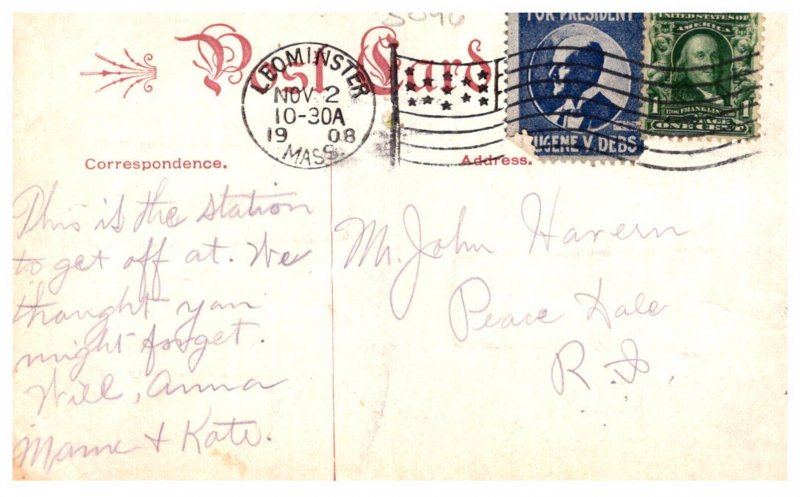 Post Card
LEOMINSTER
NOV 2
10-30A
1908
MASS.
FOR PRESIDENT
EUGENE V. DEBS
UNITED STATES OF
AMERICA
FRANKLIN
POSTAGE
ONE CENT
Correspondence.
Address.
This is the station
to get off at. We
thought you
might forget.
Will, Anna
Mame & Kate.
Mr. John Havern
Peace Dale
R.I.